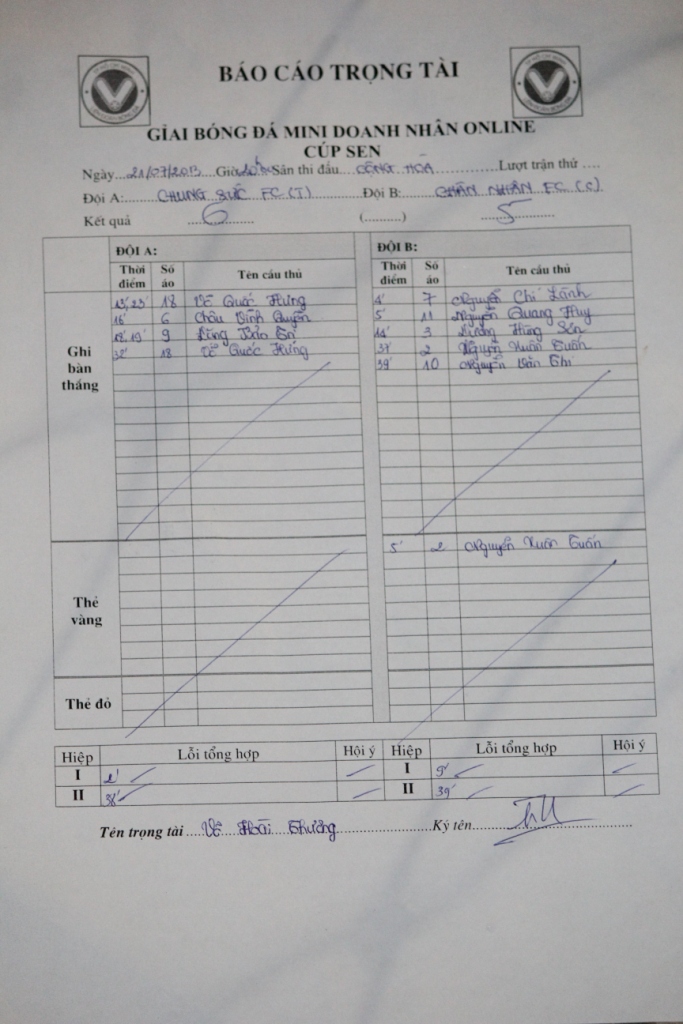 BÁO CÁO TRỌNG TÀI
GIẢI BÓNG ĐÁ MINI DOANH NHÂN ONLINE
CÚP SEN
Ngày 21/07/2013 Giờ 20h Sân thi đấu CỘNG HÒA Lượt trận thứ ....
Đội A: CHUNG SỨC FC (T) Đội B: CHÂN NHÂN FC (C)
Kết quả 6 (..........) 5
ĐỘI A: ĐỘI B:
Thời điểm Số áo Tên cầu thủ Thời điểm Số áo Tên cầu thủ
Ghi bàn thắng
13', 23' 18 Võ Quốc Hưng 4' 7 Nguyễn Chí Lãnh
16' 6 Châu Vĩnh Quyền 5' 11 Nguyễn Quang Huy
18', 19' 9 14' 3 Dương Hùng Sơn
32' 18 Võ Quốc Hưng 37' 2 Nguyễn Xuân Tuấn
39' 10 Nguyễn Văn Thi
Thẻ vàng
5' 2 Nguyễn Xuân Tuấn
Thẻ đỏ
Hiệp Lỗi tổng hợp Hội ý Hiệp Lỗi tổng hợp Hội ý
I 2' I 9'
II 38' II 39'
Tên trọng tài Võ Hoài Thương Ký tên